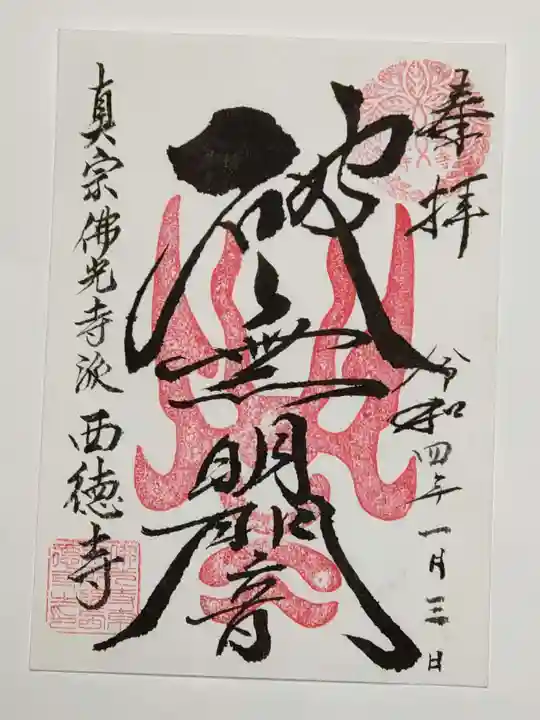 奉拝
令和四年一月三日
破無明闇
真宗佛光寺派 西徳寺